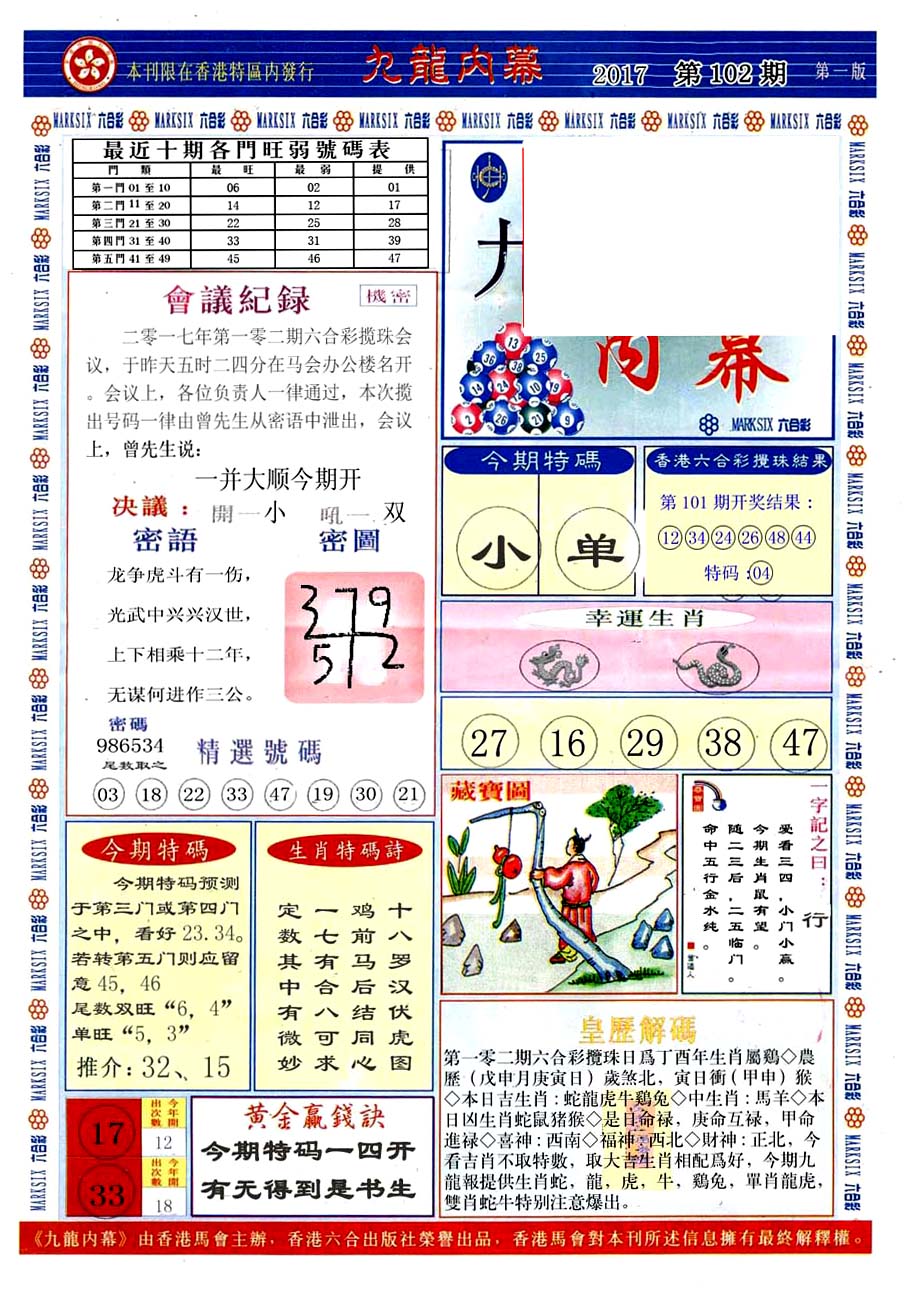 本刊限在香港特區内發行
九龍内幕
2017 第102期
第一版
MARKSIX 六合彩 MARKSIX 六合彩 MARKSIX 六合彩 MARKSIX 六合彩 MARKSIX 六合彩 MARKSIX 六合彩 MARKSIX 六合彩 MARKSIX 六合彩
最近十期各門旺弱號碼表
門 類 最 旺 最 弱 提 供
第一門 01 至 10 06 02 01
第二門 11 至 20 14 12 17
第三門 21 至 30 22 25 28
第四門 31 至 40 33 31 39
第五門 41 至 49 45 46 47
會議紀録 機密
二零一七年第一零二期六合彩揽珠会
议，于昨天五时二四分在马会办公楼名开
。会议上，各位负责人一律通过，本次揽
出号码一律由曾先生从密语中泄出，会议
上，曾先生说：
一并大顺今期开
决議： 開一小 吼一双
密語 密圖
龙争虎斗有一伤，
光武中兴兴汉世，
上下相乘十二年，
无谋何进作三公。
379
5 2
密碼
986534
尾数取之
精選號碼
03 18 22 33 47 19 30 21
内幕
13
36 25
14 24 10 19
2 26 21 9
MARKSIX 六合彩
今期特碼
小 单
香港六合彩攪珠結果
第101期开奖结果：
12 34 24 26 48 44
特码：04
幸運生肖
27 16 29 38 47
今期特碼
今期特码预测
于第三门或第四门
之中，看好23.34。
若转第五门则应留
意45，46
尾数双旺“6，4”
单旺“5，3”
推介：32、15
生肖特碼詩
十八罗汉伏虎图
鸡前马后结同心
一七有合八可求
定数其中有微妙
藏寶圖
一字記之曰：行
爱看三四，小门小赢。
今期生肖鼠有望。
随二三后，二五临门。
命中五行金水纯。
17 出次數 今年開 12
33 出次數 今年開 18
黄金赢錢訣
今期特码一四开
有无得到是书生
皇歷解碼
第一零二期六合彩攪珠日爲丁酉年生肖屬鷄◇農
歷（戊申月庚寅日）歲煞北，寅日衝（甲申）猴
◇本日吉生肖：蛇龍虎牛鷄兔◇中生肖：馬羊◇本
日凶生肖蛇鼠猪猴◇是日命禄，庚命互禄，甲命
進禄◇喜神：西南◇福神：西北◇財神：正北，今
看吉肖不取特數，取大吉生肖相配爲好，今期九
龍報提供生肖蛇，龍，虎，牛，鷄兔，單肖龍虎，
雙肖蛇牛特别注意爆出。
《九龍内幕》由香港馬會主辦，香港六合出版社榮譽出品，香港馬會對本刊所述信息擁有最終解釋權。